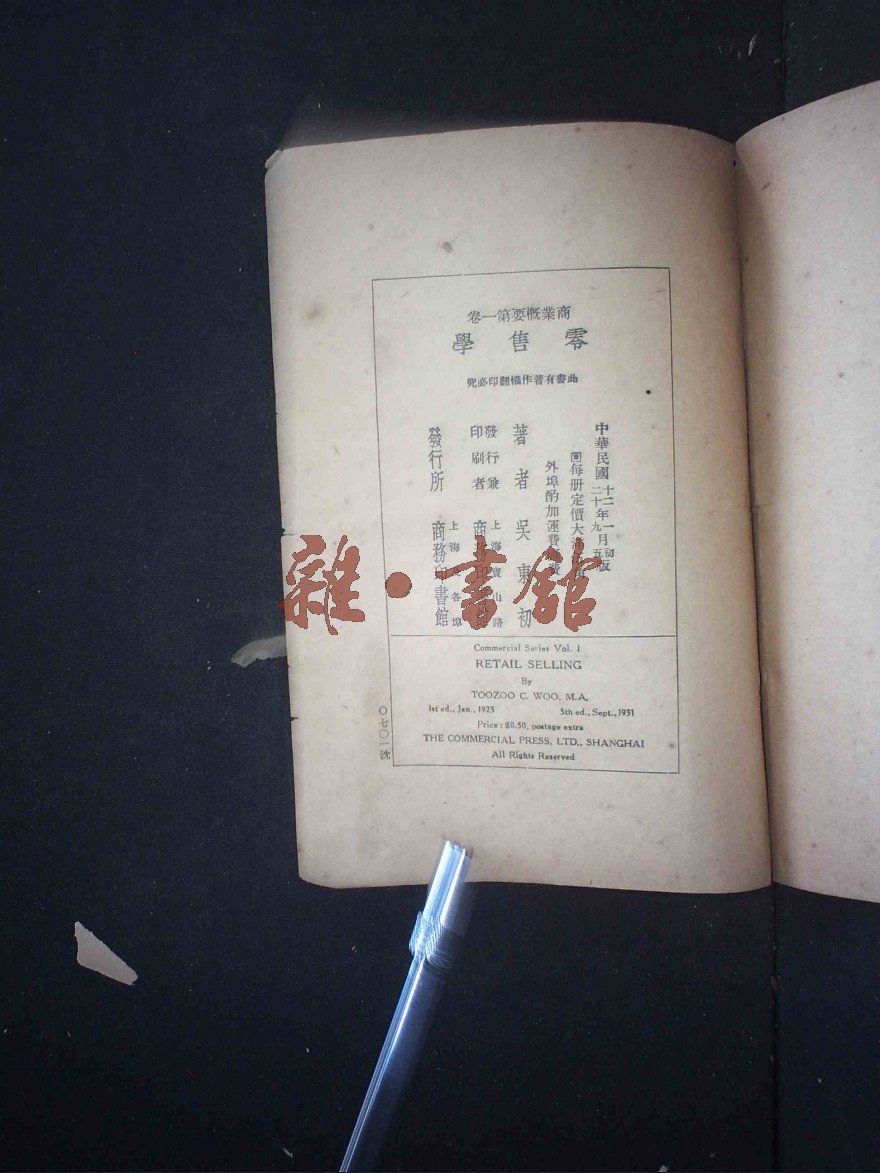 商業概要第一卷
零售學
此書有著作權翻印必究
中華民國十二年一月初版
二十年九月五版
每册定價大洋
外埠酌加運費匯費
著者 吳東初
發行兼印刷者 上海寶山路 商務印書館
發行所 上海及各埠 商務印書館
Commercial Series Vol. 1
RETAIL SELLING
By
TOOZOO C. WOO, M.A.
1st ed., Jan., 1923 5th ed., Sept., 1931
Price: $0.50, postage extra
THE COMMERCIAL PRESS, LTD., SHANGHAI
All Rights Reserved
〇七〇一沈
雜·書館